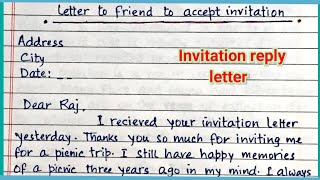 Letter to friend to accept invitation
Address
City
Date: _ _
Invitation reply
letter
Dear Raj,
I recieved your invitation letter
yesterday. Thanks you so much for inviting me
for a picnic trip. I still have happy memories
of a picnic three years ago in my mind. I always